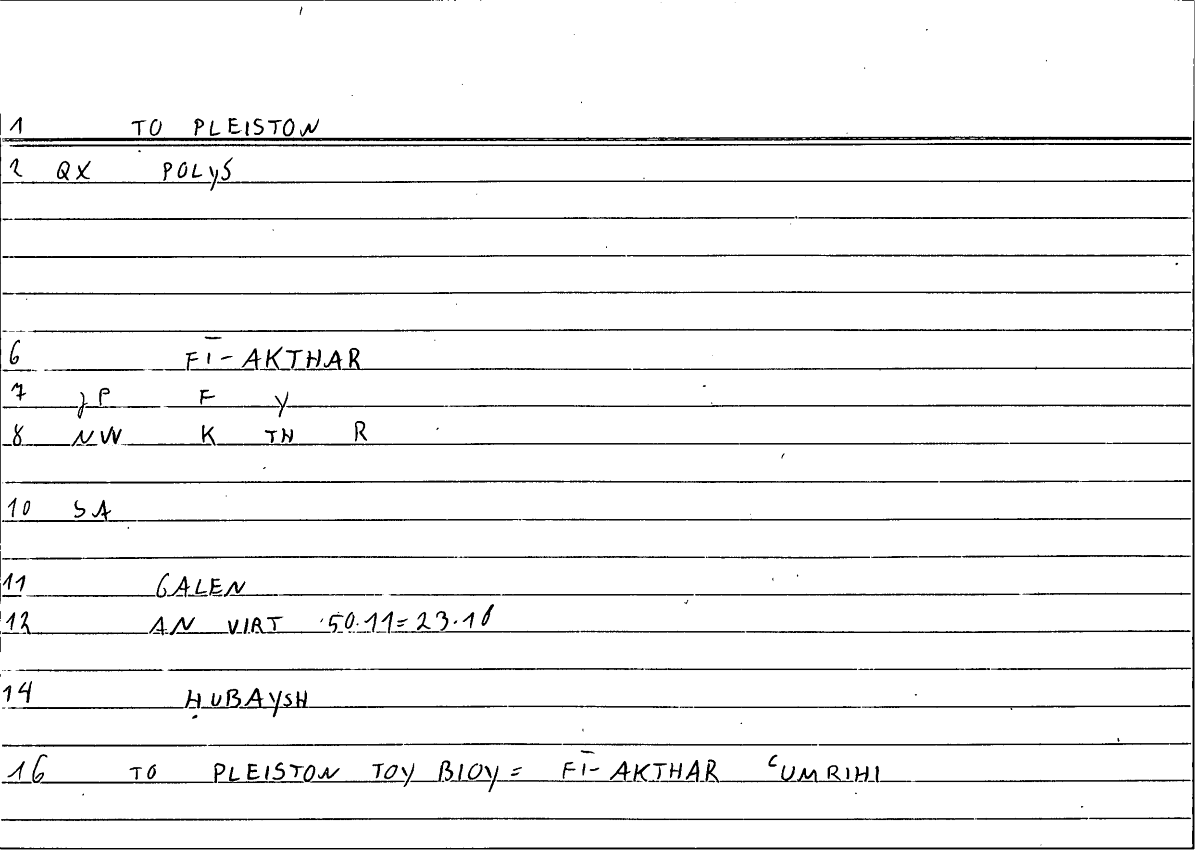 1 TO PLEISTON
2 QX POLyS
6 FĪ- AKTHAR
7 JP F Y
8 NW K TH R
10 SA
11 GALEN
12 AN VIRT 50.11=23.18
14 ḤUBAYSH
16 TO PLEISTON TOY BIOY = FĪ- AKTHAR ʿUMRIHI